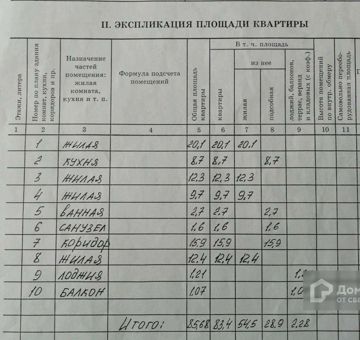 II. ЭКСПЛИКАЦИЯ ПЛОЩАДИ КВАРТИРЫ
Этажи, литера
Номер по плану здания комнат, кухни, коридоров и пр.
Назначение частей помещения: жилая комната, кухня и т. п.
Формула подсчета помещений
Общая площадь квартиры
В т. ч. площадь
квартиры
из нее
жилая
подсобная
лоджий, балконов, террас, веранд и кладовых (с коэф.)
Высота помещений по внутр. обмеру
Самовольно переоборудованная площадь
1 2 3 4 5 6 7 8 9 10 11
1 ЖИЛАЯ 20,1 20,1 20,1
2 КУХНЯ 8,7 8,7 8,7
3 ЖИЛАЯ 12,3 12,3 12,3
4 ЖИЛАЯ 9,7 9,7 9,7
5 ВАННАЯ 2,7 2,7 2,7
6 САНУЗЕЛ 1,6 1,6 1,6
7 КОРИДОР 15,9 15,9 15,9
8 ЖИЛАЯ 12,4 12,4 12,4
9 ЛОДЖИЯ 1,21
10 БАЛКОН 1,07
ИТОГО: 85,68 83,4 54,5 28,9 2,28